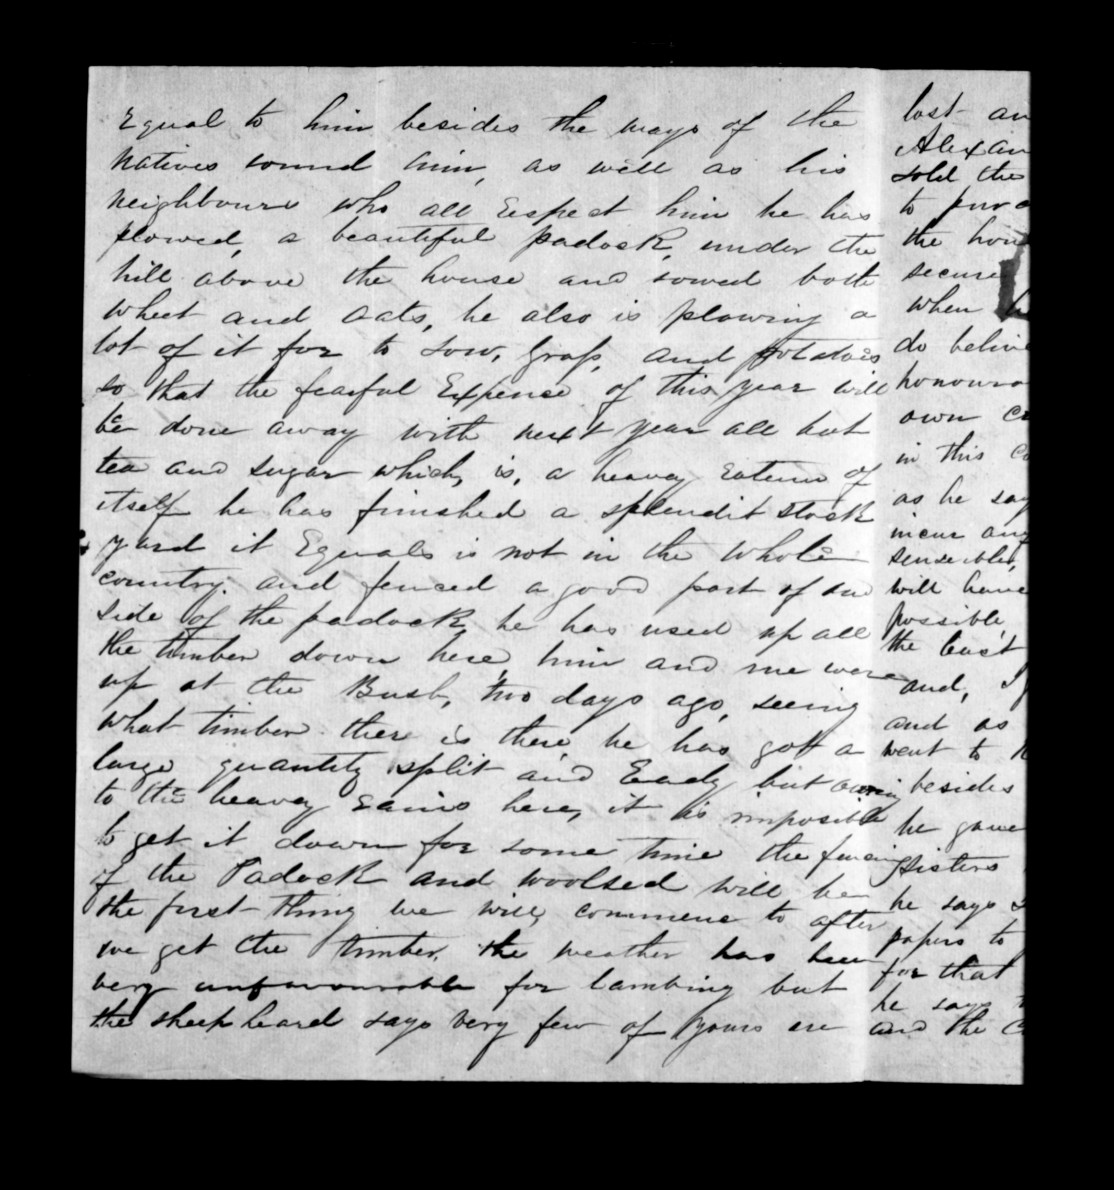 Equal to him besides the ways of the
natives round him, as well as his
neighbours who all respect him he has
plowed, a beautiful padock, under the
hill above the house and sowed both
wheet and oats, he also is plowing a
lot of it for to sow, Grass, and potatois
so that the fearful Expense of this year will
be done away with next year all but
tea and sugar which, is, a heavey of
itself he has finished a splendit stock
yard it Equals is not in the whole
country. and fenced a good part of and
side of the padock, he has used up all
the timber down here, him and me were
up at the Bush, two days ago, seeing
what timber there is there he has got a
large quantity split and ready but owing
to the heavey rains here, it is imposible
to get it down for some time the fencing
of the Padock and woolsed will be
the first thing we will commence to after
we get the timber. the weather has been
very unfavourable for lambing but
the sheepheard says very few of yours are
lost an
Alexan
sold the
to purc
the hou
secure
when h
do belive
honoura
own
in this
as he say
incur any
senserbles,
will have
possible
the least
and, If
and as
went to
besides
he gave
Sisters
he says
papers to
for that
he says
and the